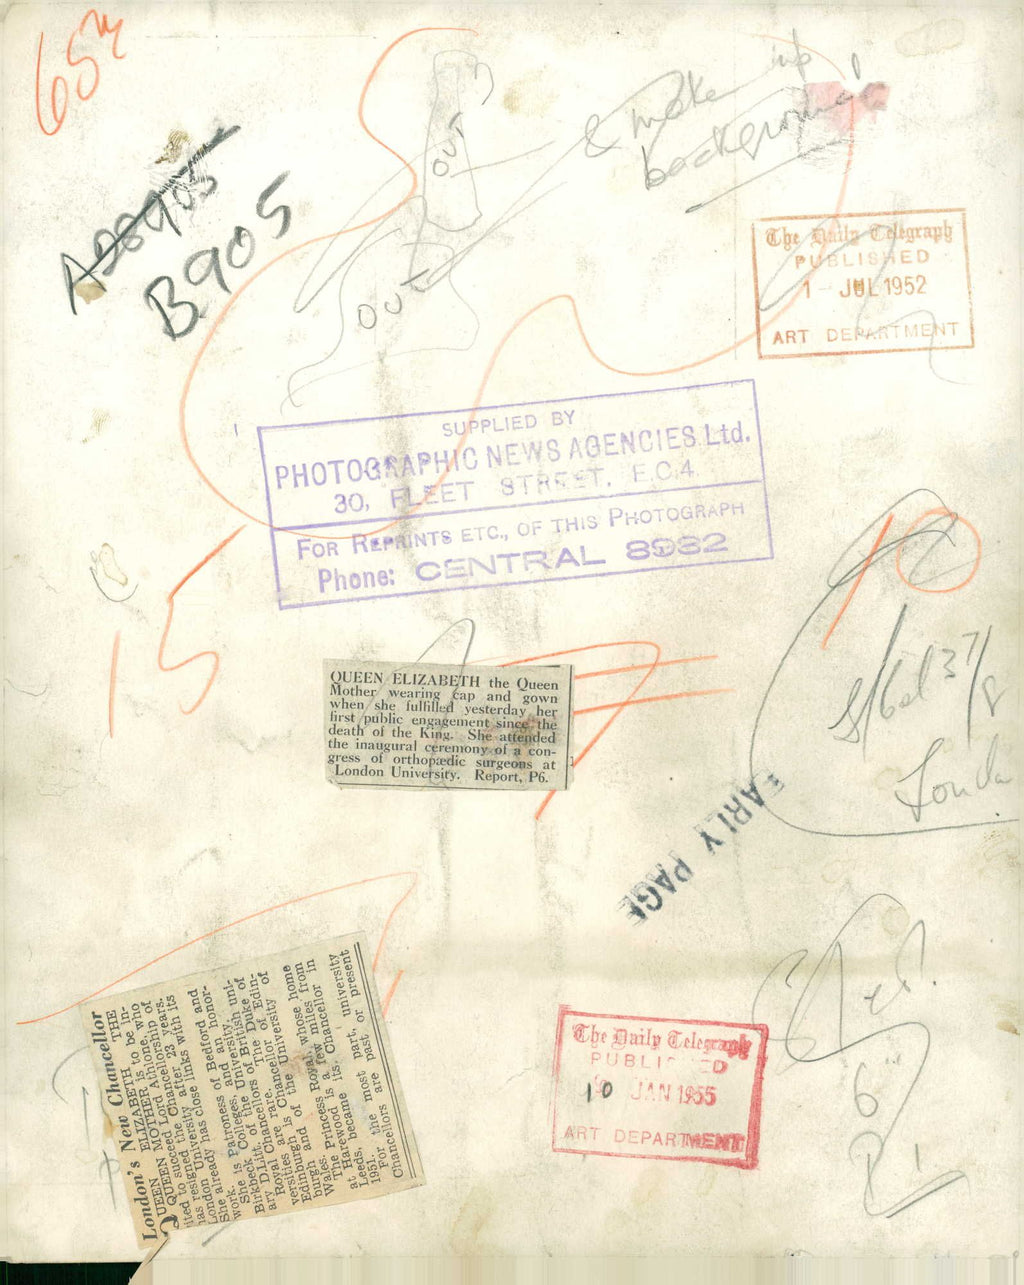 65
& make up
background
OUT
A28905
B905
OUT
The Daily Telegraph
PUBLISHED
1 JUL 1952
ART DEPARTMENT
SUPPLIED BY
PHOTOGRAPHIC NEWS AGENCIES Ltd.
30, FLEET STREET, E.C.4.
FOR REPRINTS ETC., OF THIS PHOTOGRAPH
Phone: CENTRAL 8932
15
10
QUEEN ELIZABETH the Queen
Mother wearing cap and gown
when she fulfilled yesterday her
first public engagement since the
death of the King. She attended
the inaugural ceremony of a con-
gress of orthopædic surgeons at
London University. Report, P6.
EARLY PAGE
London's New Chancellor
QUEEN ELIZABETH THE
QUEEN MOTHER is to be in-
ited to succeed Lord Athlone, who
has resigned the Chancellorship of
London University after 23 years.
She already has close links with its
work. Patroness of Bedford and
She is Colleges, and an honor-
Birkbeck of the University, uni-
ary D.Litt. of the British
Royal Chancellors of Edin-
versities are rare. The Duke of
Edinburgh is Chancellor of
burgh and of the University of
Wales. Princess Royal, whose home
at Harewood is a few miles from
Leeds, became its Chancellor in
1951.
For the most part, university
Chancellors are past or present
The Daily Telegraph
PUBLISHED
10 JAN 1955
ART DEPARTMENT